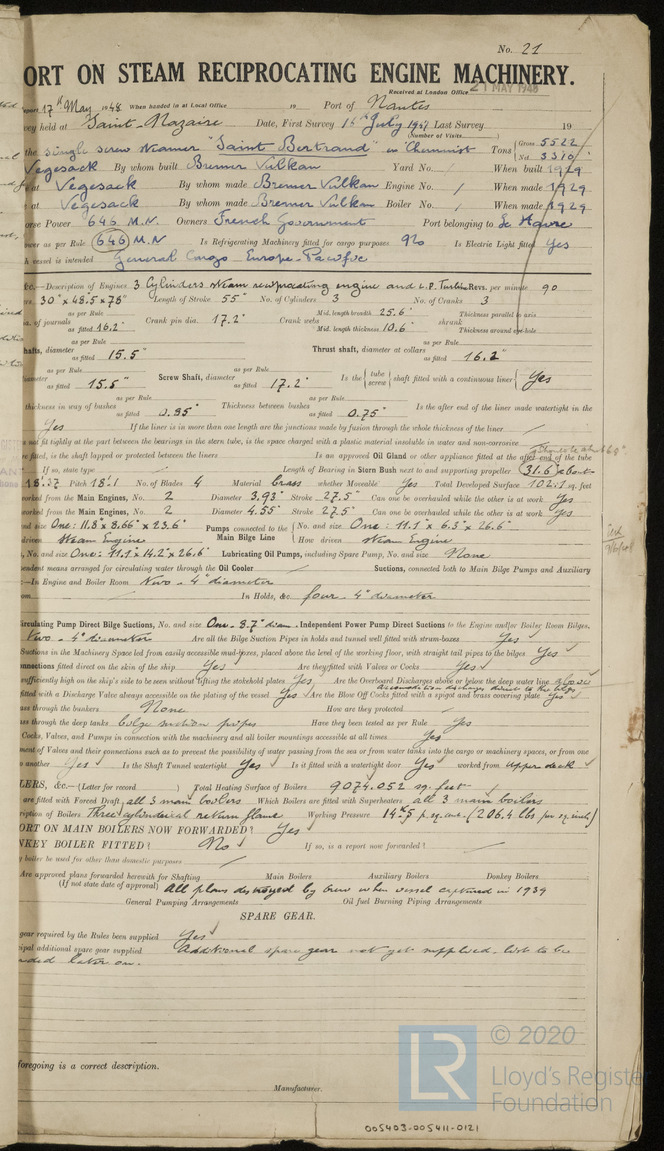 No. 21
ORT ON STEAM RECIPROCATING ENGINE MACHINERY.
Received at London Office 21 MAY 1948
17th May 1948 When handed in at Local Office 19 Port of Nantes
vey held at Saint-Nazaire Date, First Survey 16th July 1947 Last Survey 19
(Number of Visits
the single screw steamer "Saint Bertrand" ex "Chemnitz" Tons { Gross 5522 Net 3310
Vegesack By whom built Bremer Vulkan Yard No. / When built 1929
at Vegesack By whom made Bremer Vulkan Engine No. / When made 1929
at Vegesack By whom made Bremer Vulkan Boiler No. / When made 1929
orse Power 646 M.N. Owners French Government Port belonging to Le Havre
wer as per Rule 646 M.N Is Refrigerating Machinery fitted for cargo purposes No Is Electric Light fitted Yes
vessel is intended General Cargo Europe-Pacific
&c.—Description of Engines 3 Cylinders steam reciprocating engine and L.P. Turbine Revs. per minute 90
rs. 30" x 48.5 x 78" Length of Stroke 55" No. of Cylinders 3 No. of Cranks 3
of journals as per Rule as fitted 16.2" Crank pin dia. 17.2" Crank webs Mid. length breadth 25.6" Mid. length thickness 10.6" shrunk Thickness parallel to axis Thickness around eye-hole
hafts, diameter as per Rule as fitted 15.5" Thrust shaft, diameter at collars as per Rule as fitted 16.2"
iameter as per Rule as fitted 15.5" Screw Shaft, diameter as per Rule as fitted 17.2" Is the { tube screw } shaft fitted with a continuous liner { Yes
thickness in way of bushes as per Rule as fitted 0.95" Thickness between bushes as per Rule as fitted 0.75" Is the after end of the liner made watertight in the
Yes If the liner is in more than one length are the junctions made by fusion through the whole thickness of the liner
not fit tightly at the part between the bearings in the stern tube, is the space charged with a plastic material insoluble in water and non-corrosive
re fitted, is the shaft lapped or protected between the liners Is an approved Oil Gland or other appliance fitted at the after end of the tube
If so, state type Length of Bearing in Stern Bush next to and supporting propeller 31.6" about
18.37 Pitch 18.1 No. of Blades 4 Material brass whether Moveable Yes Total Developed Surface 102.1 sq. feet
worked from the Main Engines, No. 2 Diameter 3.93" Stroke 27.5" Can one be overhauled while the other is at work Yes
worked from the Main Engines, No. 2 Diameter 4.55" Stroke 27.5" Can one be overhauled while the other is at work Yes
nd size One: 11.8" x 8.66" x 23.6" Pumps connected to the Main Bilge Line { No. and size One: 11.1" x 6.3" x 26.6"
driven Steam Engine How driven Steam Engine
, No. and size One: 11.1" x 14.2" x 26.6" Lubricating Oil Pumps, including Spare Pump, No. and size None
pendent means arranged for circulating water through the Oil Cooler Suctions, connected both to Main Bilge Pumps and Auxiliary
—In Engine and Boiler Room Two - 4" diameter
In Holds, &c. four - 4" diameter
irculating Pump Direct Bilge Suctions, No. and size One - 8.7" diam. Independent Power Pump Direct Suctions to the Engine and/or Boiler Room Bilges,
Two - 4" diameter Are all the Bilge Suction Pipes in holds and tunnel well fitted with strum-boxes Yes
Suctions in the Machinery Space led from easily accessible mud-boxes, placed above the level of the working floor, with straight tail pipes to the bilges Yes
nnections fitted direct on the skin of the ship Yes Are they fitted with Valves or Cocks Yes
sufficiently high on the ship's side to be seen without lifting the stokehold plates Yes Are the Overboard Discharges above or below the deep water line above
fitted with a Discharge Valve always accessible on the plating of the vessel Yes Are the Blow Off Cocks fitted with a spigot and brass covering plate Yes
ass through the bunkers None How are they protected
ass through the deep tanks bilge suction pipes Have they been tested as per Rule Yes
Cocks, Valves, and Pumps in connection with the machinery and all boiler mountings accessible at all times Yes
ment of Valves and their connections such as to prevent the possibility of water passing from the sea or from water tanks into the cargo or machinery spaces, or from one
another Yes Is the Shaft Tunnel watertight Yes Is it fitted with a watertight door Yes worked from upper deck
LERS, &c.—(Letter for record ) Total Heating Surface of Boilers 9074.052 sq. feet
are fitted with Forced Draft all 3 main boilers Which Boilers are fitted with Superheaters all 3 main boilers
ription of Boilers Three cylindrical return flame Working Pressure 14k5 p. sq. cm. (206.4 lbs per sq. inch)
ORT ON MAIN BOILERS NOW FORWARDED? Yes
NKEY BOILER FITTED? No If so, is a report now forwarded?
y boiler be used for other than domestic purposes
Are approved plans forwarded herewith for Shafting Main Boilers Auxiliary Boilers Donkey Boilers
(If not state date of approval) All plans destroyed by crew when vessel captured in 1939
General Pumping Arrangements Oil fuel Burning Piping Arrangements
SPARE GEAR.
gear required by the Rules been supplied Yes
ipal additional spare gear supplied Additional spare gear not yet supplied. but to be
later on.
foregoing is a correct description.
Manufacturer.
LR © 2020
Lloyd's Register
Foundation
005403-005411-0121